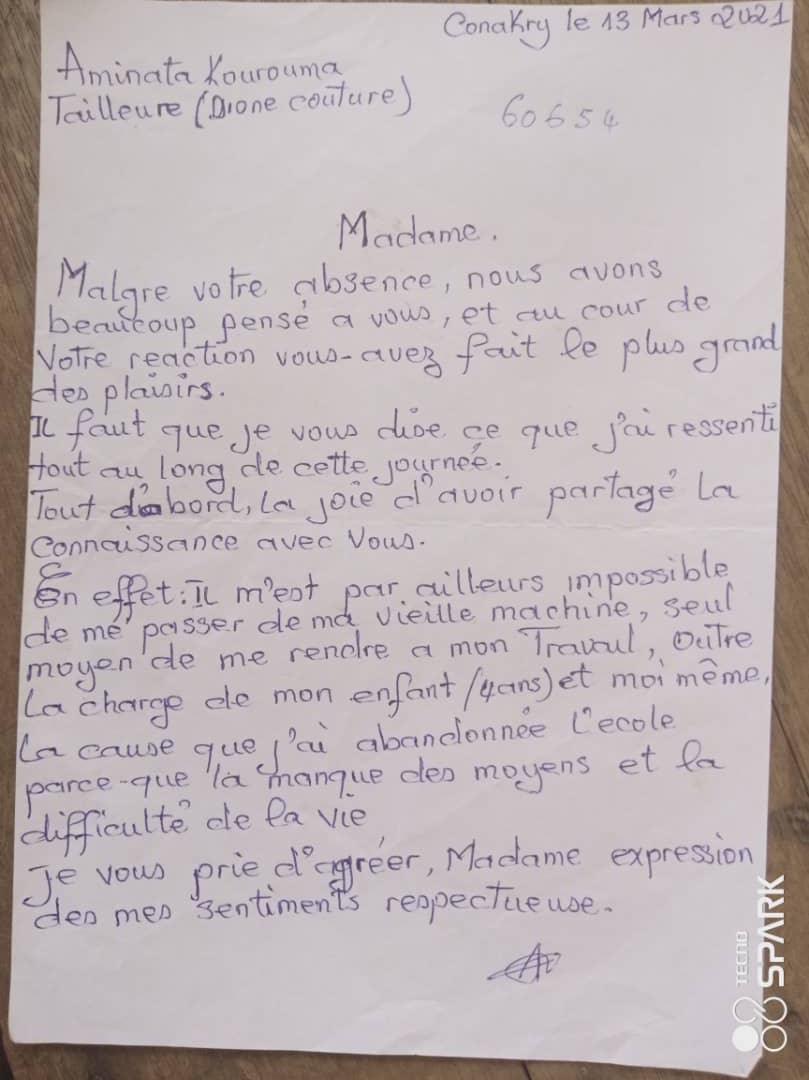 Conakry le 13 Mars 2021
Aminata Kourouma
Tailleure (Dione couture)
60654
Madame.
Malgre votre absence, nous avons
beaucoup pensé a vous, et au cour de
Votre reaction vous-avez fait le plus grand
des plaisirs.
Il faut que je vous dise ce que j'ai ressenti
tout au long de cette journée.
Tout d'abord, la joie d'avoir partagé la
connaissance avec Vous.
En effet: Il m'est par ailleurs impossible
de me passer de ma vieille machine, seul
moyen de me rendre a mon Travail, Outre
La charge de mon enfant (4ans) et moi même,
La cause que j'ai abandonnée l'ecole
parce-que la manque des moyens et la
difficulté de la vie,
Je vous prie d'agréer, Madame expression
des mes sentiments respectueuse.
TECNO
SPARK